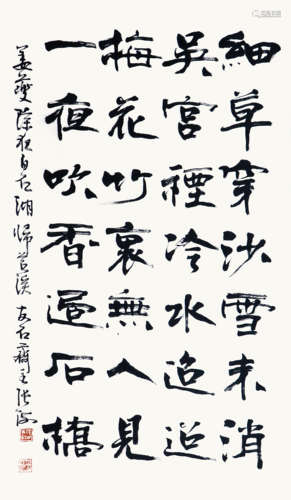 細草穿沙雪未消
吳宮煙冷水迢迢
梅花竹裏無人見
一夜吹香過石橋
姜夔除夜自石湖歸苕溪 友石齋主張海